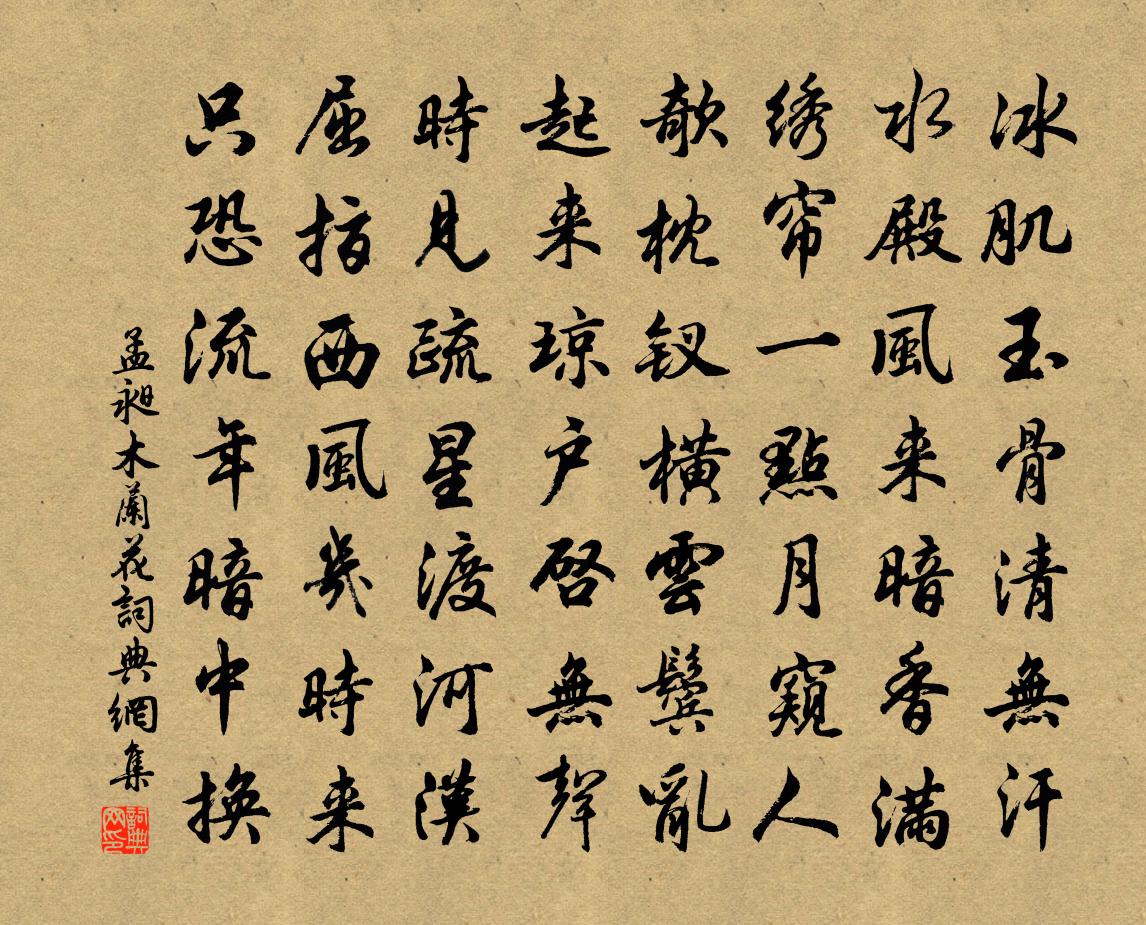 冰肌玉骨清無汗
水殿風来暗香滿
绣帘一點月窺人
欹枕钗橫雲鬓亂
起来琼户啓無聲
時見疏星渡河漢
屈指西風幾時来
只恐流年暗中换
孟昶木蘭花詞典網集
詞典網印